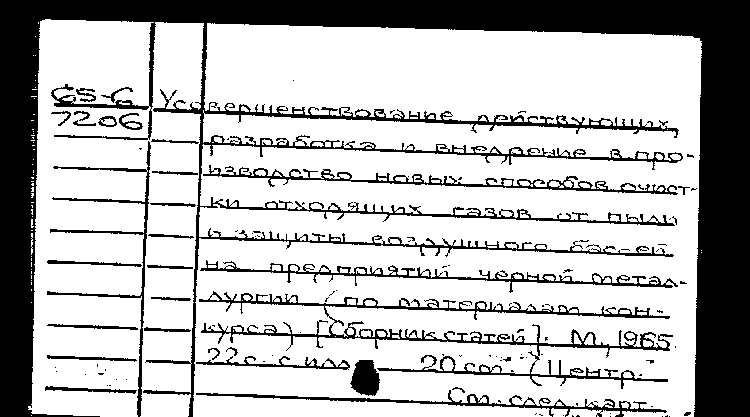 65-6 Усовершенствование действующих,
7206
разработка и внедрение в про-
изводство новых способов очист-
ки отходящих газов от пыли
и защиты воздушного бас-ей
на предприятий черной метал-
лургии (по материалам кон-
курса). [Сборник статей]. М., 1965.
22 с. с илл. 20 см. (Центр.
См. след. карт.